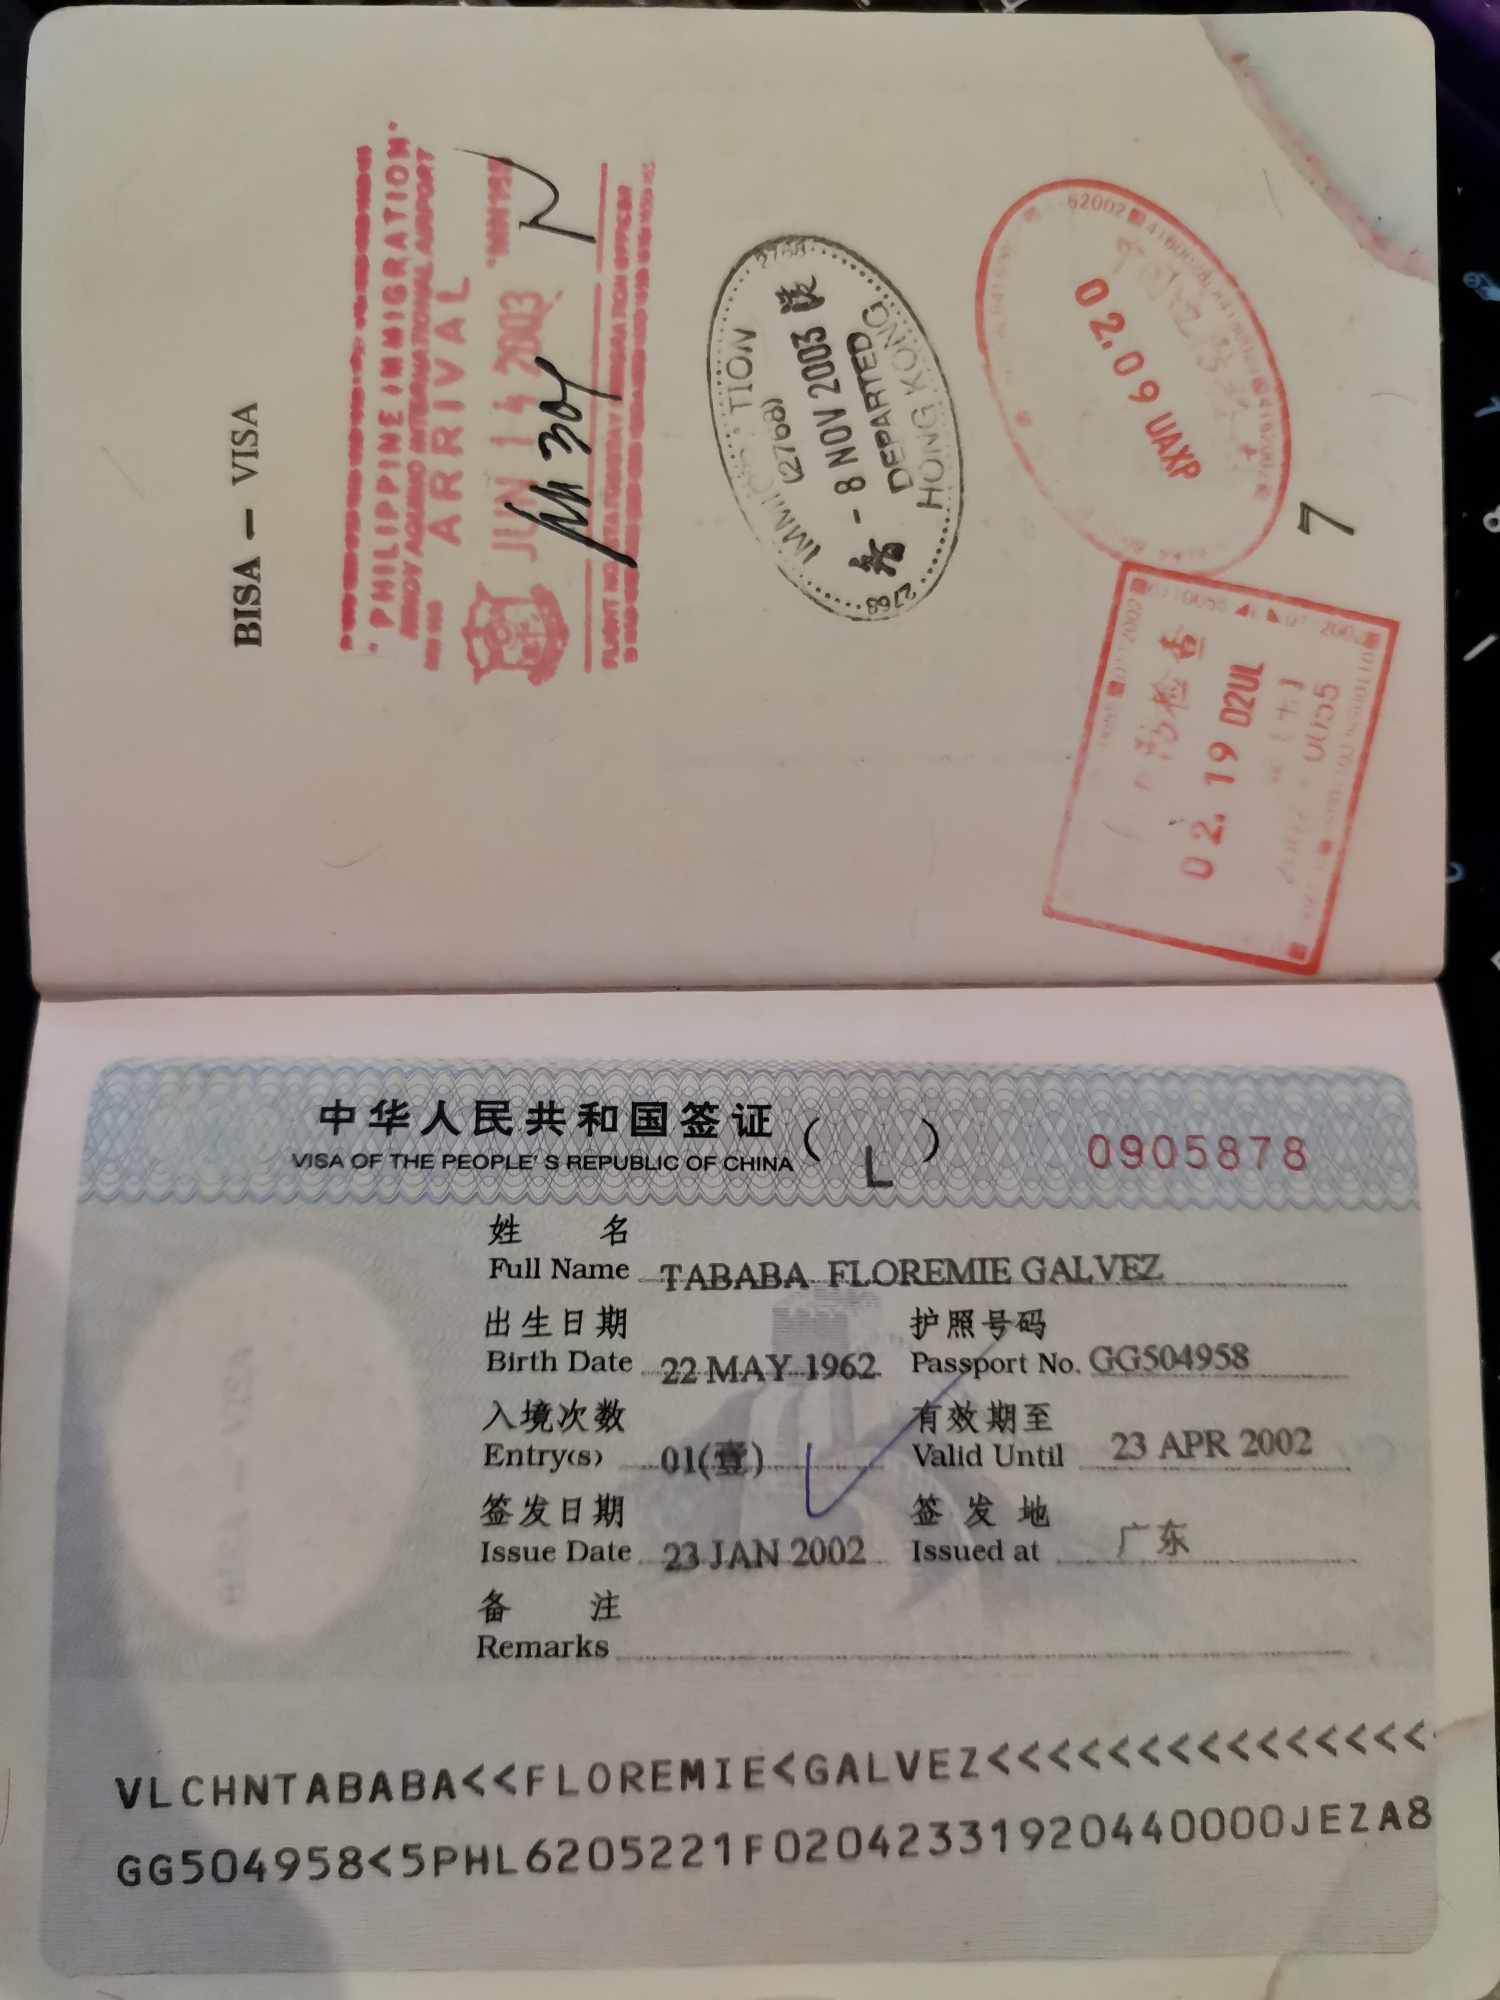 BISA — VISA
"PHILIPPINE IMMIGRATION"
NINOY AQUINO INTERNATIONAL AIRPORT
ARRIVAL
JUN 14 2003
IMMIGRATION
(2768)
- 8 NOV 2003
DEPARTED
HONG KONG
2768
2768
02.09 UAXP
62002
7
02. 19 D2UL
0055
中华人民共和国签证 ( L )
VISA OF THE PEOPLE'S REPUBLIC OF CHINA
0905878
姓 名
Full Name TABABA FLOREMIE GALVEZ
出生日期 护照号码
Birth Date 22 MAY 1962 Passport No. GG504958
入境次数 有效期至
Entry(s) 01(壹) Valid Until 23 APR 2002
签发日期 签发地
Issue Date 23 JAN 2002 Issued at 广东
备 注
Remarks
VLCHNTABABA<<FLOREMIE<GALVEZ<<<<<<<<<<<<<<<<
GG504958<5PHL6205221F02042331920440000JEZA8